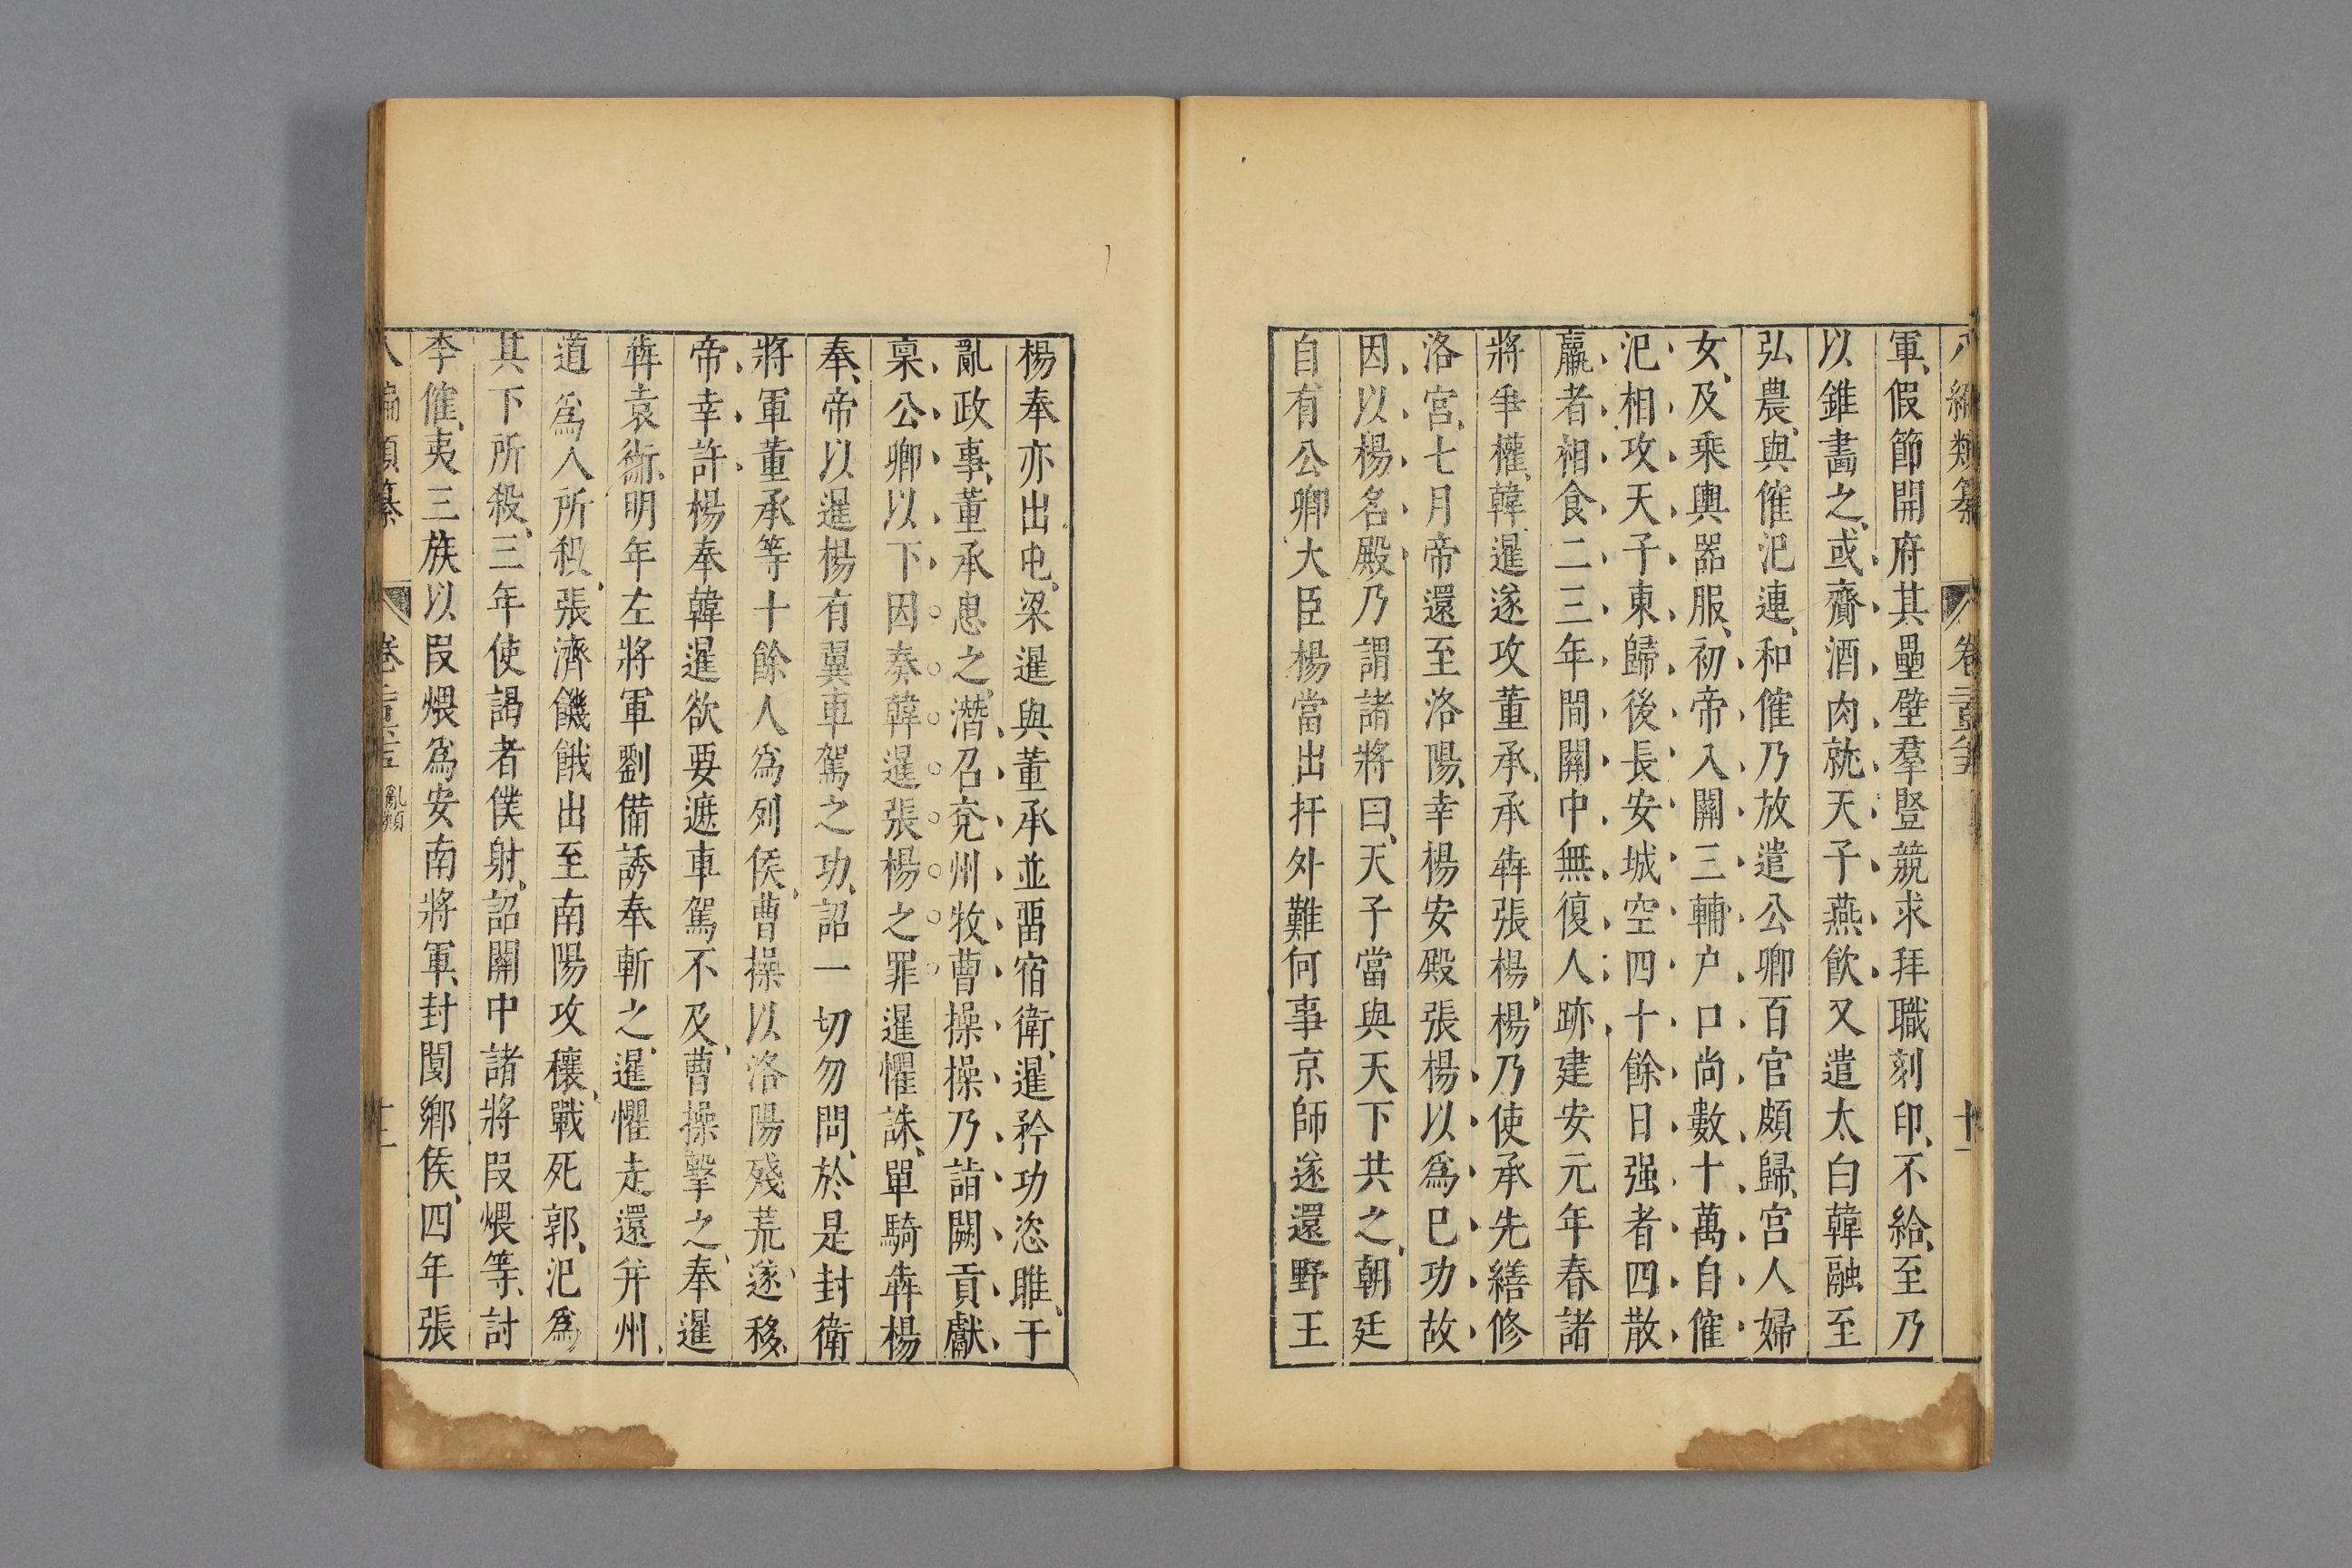 軍、假節開府其壘壁羣豎競求拜職刻印、不給、至乃
以錐畵之、或齎酒肉就天子燕飲又遣太白韓融至
弘農、與傕汜連、和傕乃放遣公卿百官頗歸、宫人婦
女、及乗輿器服、初帝入關三輔户口尚數十萬自傕
汜相攻天子東歸後長安城空四十餘日强者四散
羸者相食二三年間關中無復人跡建安元年春諸
將爭權、韓暹遂攻董承、承犇張楊、楊乃使承先繕修
洛宫、七月帝還至洛陽、幸楊安殿張楊以爲巳功故
因以楊名殿乃謂諸將曰、天子當與天下共之、朝廷
自有公卿大臣楊當出扞外難何事京師遂還野王
楊奉亦出屯、梁暹與董承並畱宿衛、暹矜功恣睢、干
亂政事、董承患之、潛召兖州牧曹操操乃詣闕貢獻
稟公卿以下因奏韓暹張楊之罪暹懼誅、單騎犇楊
奉、帝以暹楊有翼車駕之功、詔一切勿問、於是封衛
將軍董承等十餘人爲列侯、曹操以洛陽殘荒、遂移
帝幸許楊奉韓暹欲要遮車駕不及、曹操擊之、奉暹
犇袁術、明年左將軍劉備誘奉斬之、暹懼走還并州、
道爲人所殺、張濟饑餓出至南陽攻穰、戰死郭、汜爲
其下所殺、三年使謁者僕射、詔關中諸將叚煨等、討
李傕、夷三族以叚煨爲安南將軍、封閺鄉侯、四年張